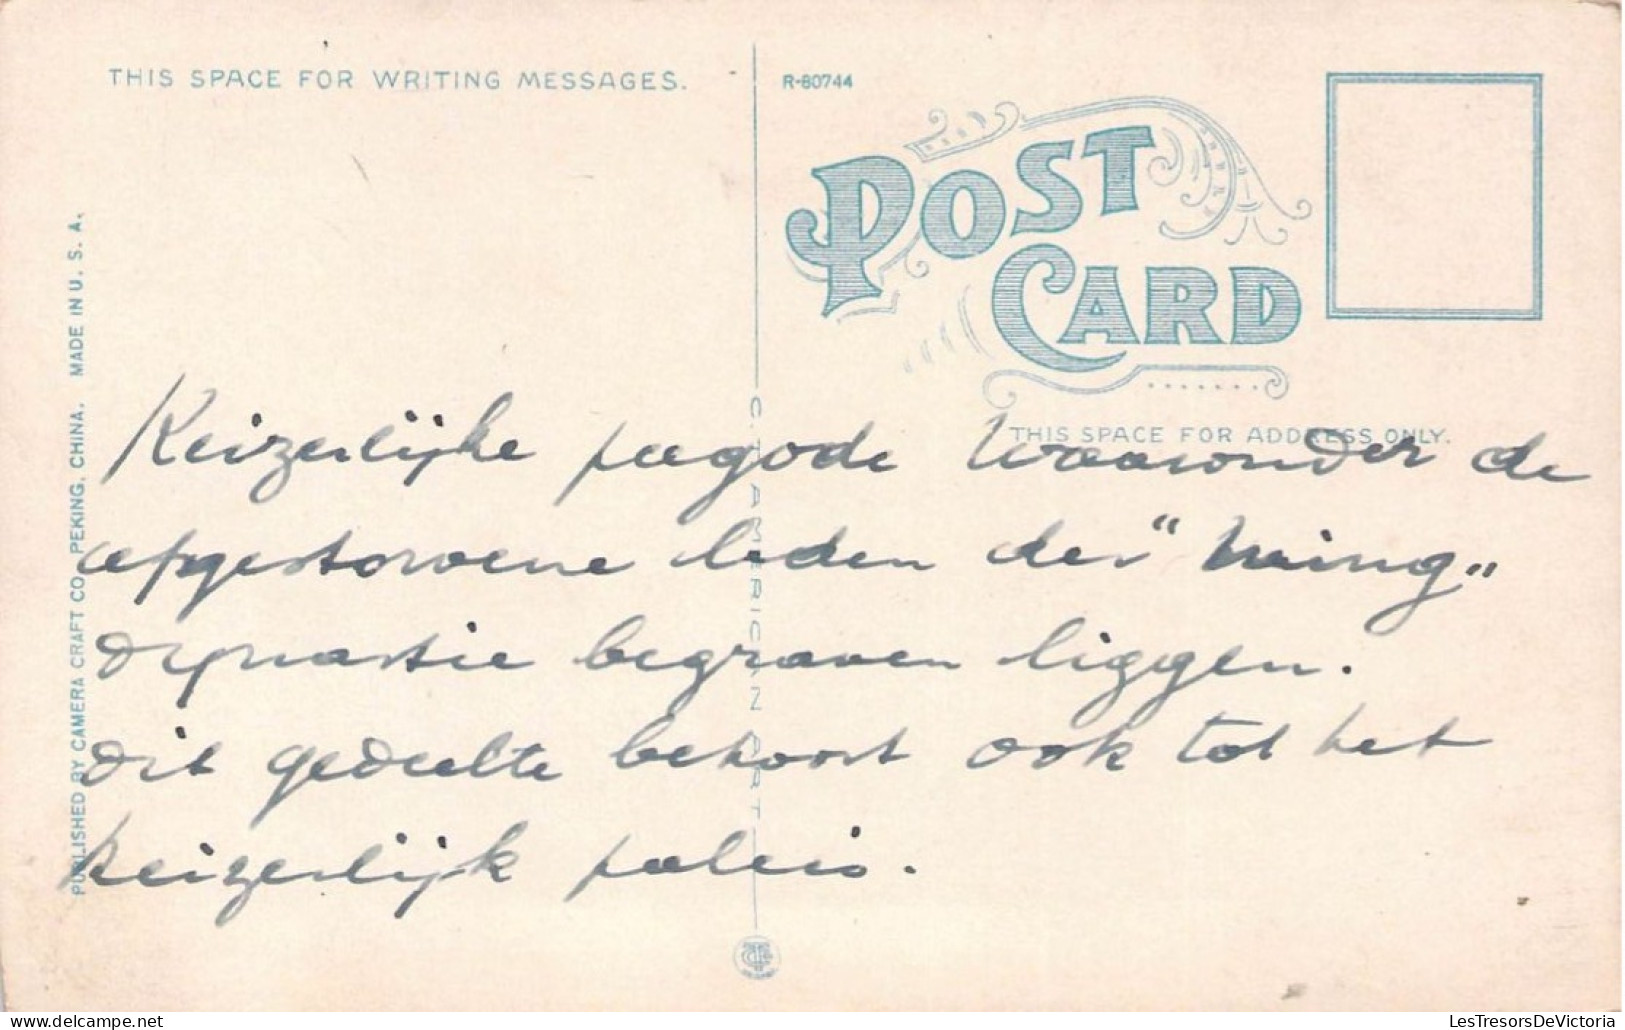 THIS SPACE FOR WRITING MESSAGES.
R-80744
POST
CARD
THIS SPACE FOR ADDRESS ONLY.
PUBLISHED BY CAMERA CRAFT CO. PEKING, CHINA. MADE IN U. S. A.
C. T. AMERICAN ART
Keizerlijke pagode waaronder de
afgestorvene leden der "Ming"
dynastie begraven liggen.
dit gedeelte behoort ook tot het
keizerlijk paleis.
LesTresorsDeVictoria